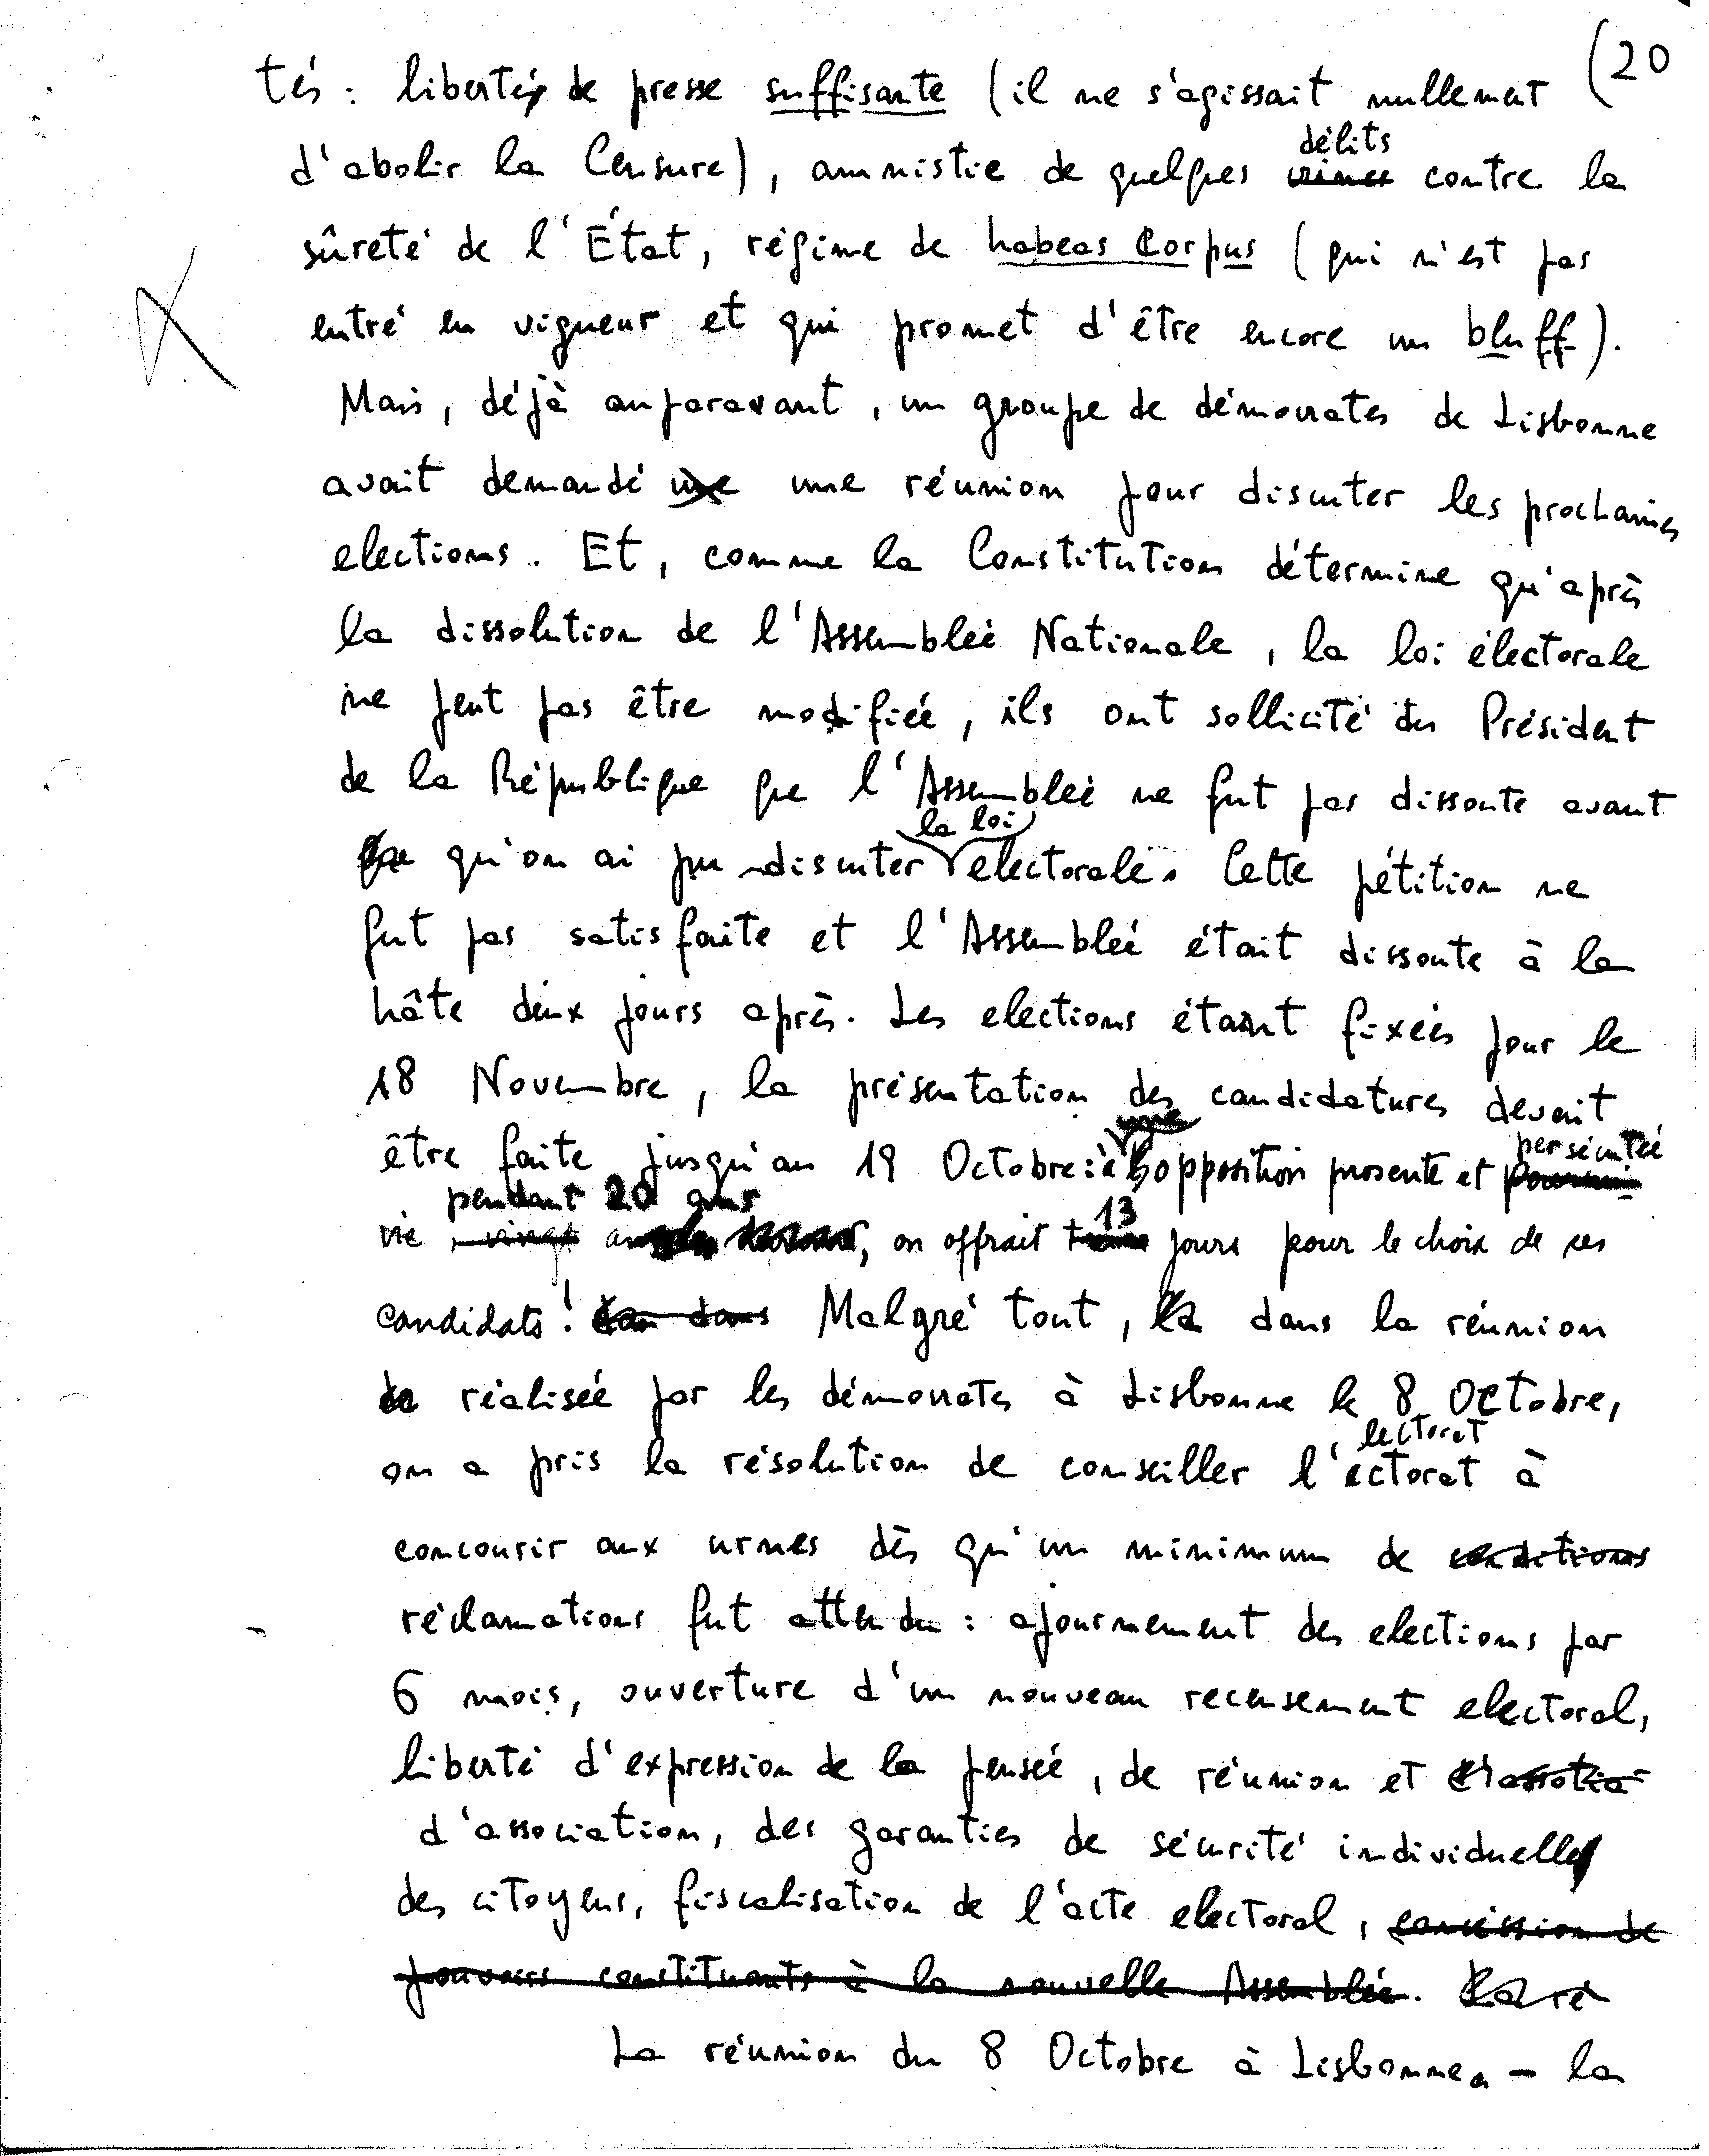 (20
tés : liberté de presse suffisante (il ne s'agissait nullement
d'abolir la Censure), amnistie de quelques délits contre la
sûreté de l'État, régime de habeas corpus (qui n'est pas
entré en vigueur et qui promet d'être encore un bluff).
Mais, déjà auparavant, un groupe de démocrates de Lisbonne
avait demandé une réunion pour discuter les prochaines
elections. Et, comme la Constitution détermine qu'après
la dissolution de l'Assemblée Nationale, la loi électorale
ne peut pas être modifiée, ils ont sollicité du Président
de la République que l'Assemblée ne fut pas dissoute avant
qu'on ai pu discuter la loi electorale. Cette pétition ne
fut pas satisfaite et l'Assemblée était dissoute à la
hâte deux jours après. Les elections étant fixées pour le
18 Novembre, la présentation des candidatures devait
être faite jusqu'au 19 Octobre: à opposition proscrite et persécutée
pendant 20 ans
, on offrait 13 jours pour le choix de ses
candidats! Malgré tout, dans la réunion
réalisée par les démocrates à Lisbonne le 8 Octobre,
on a pris la résolution de conseiller l'électorat à
concourir aux urnes dès qu'un minimum de conditions
réclamations fut attendu : ajournement des elections par
6 mois, ouverture d'un nouveau recensement electoral,
liberté d'expression de la pensée, de réunion et d'associa-
d'association, des garanties de sécurité individuelle
des citoyens, fiscalisation de l'acte electoral, concession de
pouvoirs constituants à la nouvelle Assemblée. La ré
La réunion du 8 Octobre à Lisbonne - la